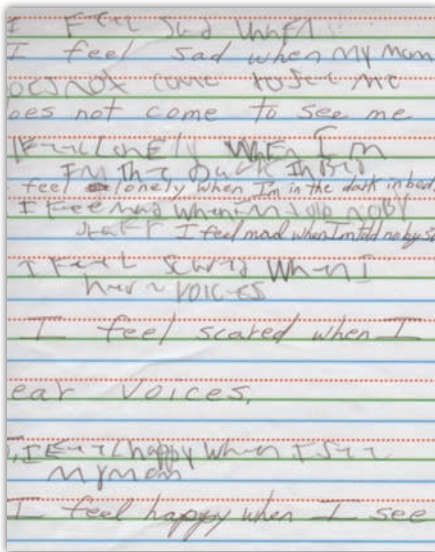 I Feel Sad When
I feel sad when my mom
not come to see me
oes not come to see me
I Feel Lonely When I'm
I'm the Dark In Bed
feel lonely when I'm in the dark in bed,
I Feel mad when I'm told no By
staff I feel mad when I'm told no by s
I Feel Scared When I
hear voices
I feel scared when I
ear voices,
I Feel happy when I see
my mom
I feel happy when I see